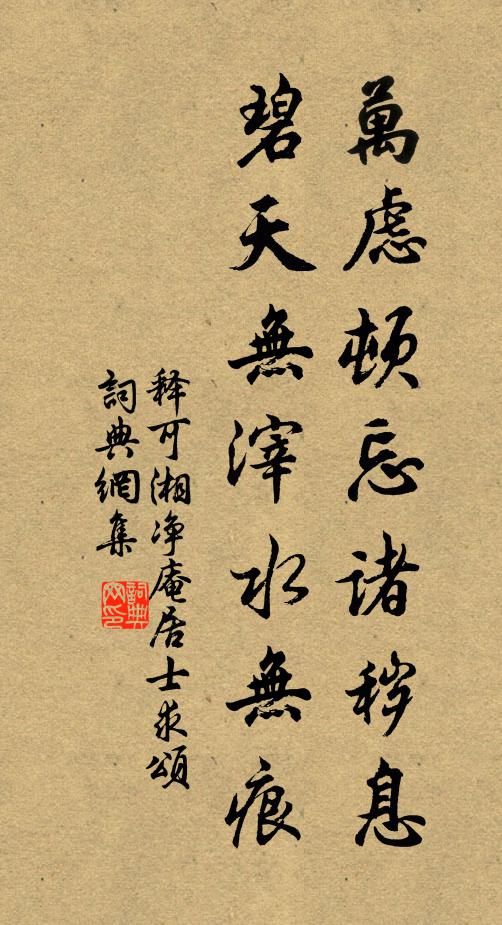 萬慮頓忘諸穢息
碧天無滓水無痕
釋可湘净庵居士求頌
詞典網集
詞典
网印